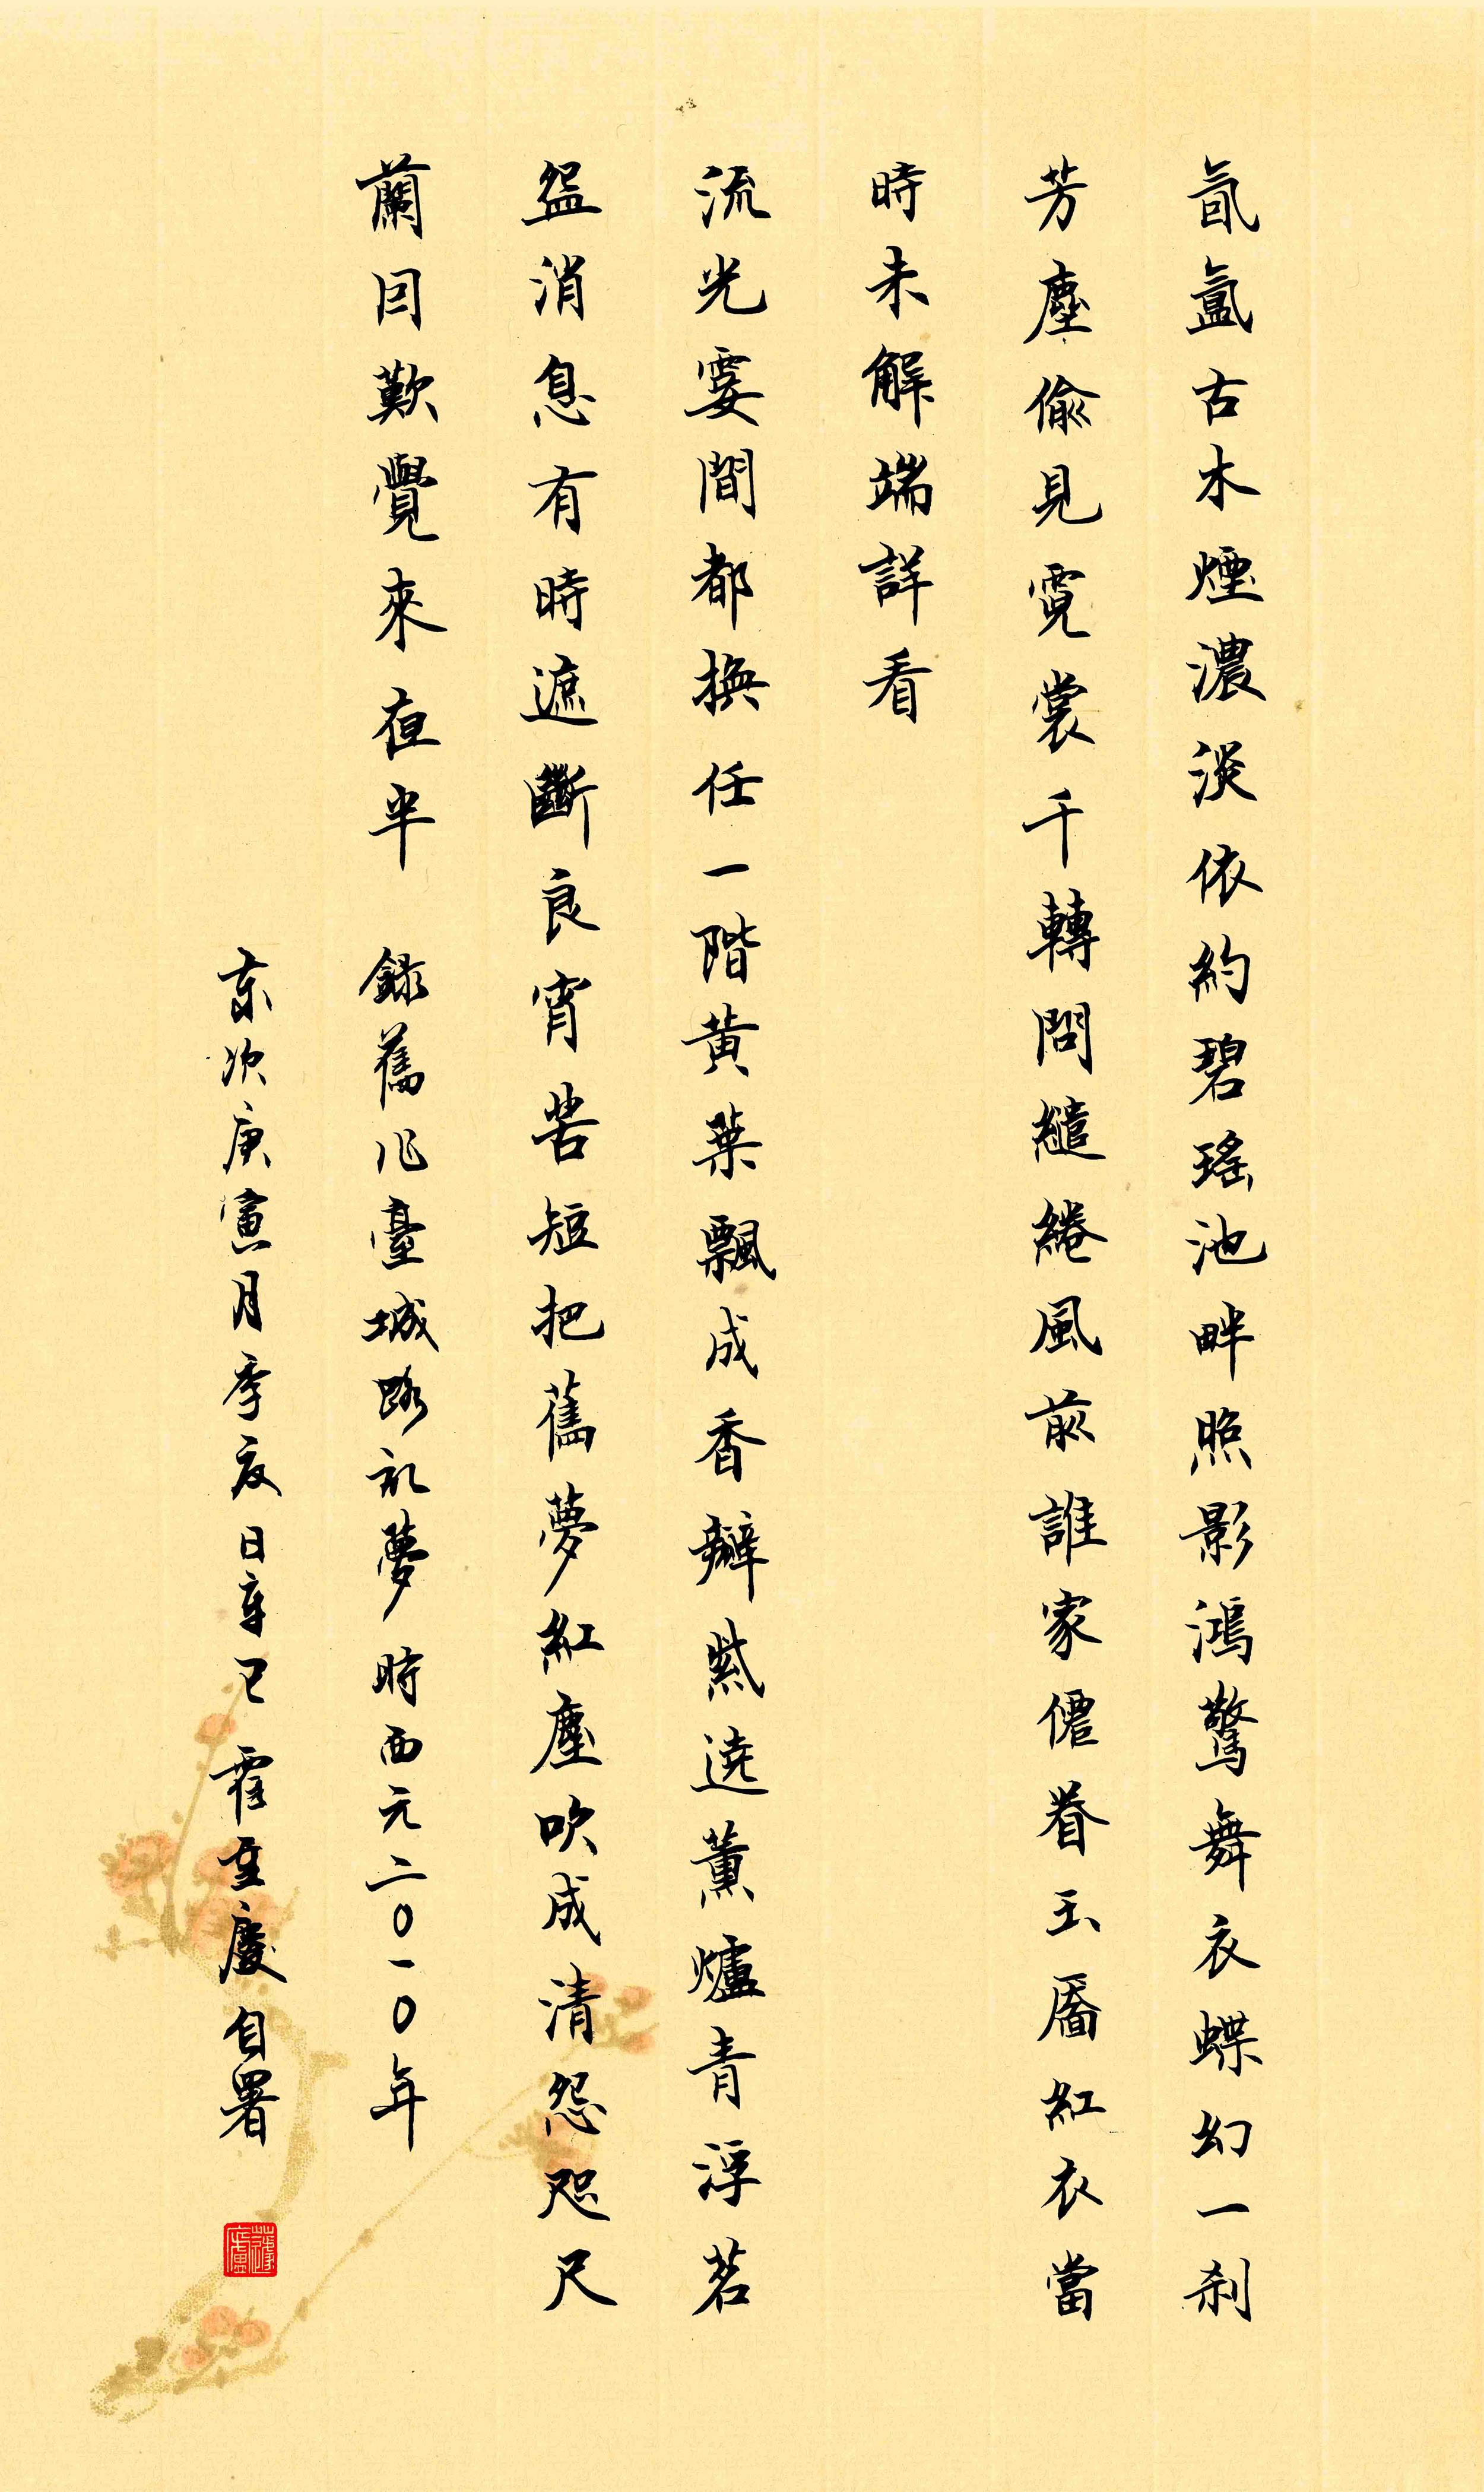 氤氳古木煙濃淡依約碧瑤池畔照影鴻驚舞衣蝶幻一刹
芳塵偷見霓裳千轉問繾綣風前誰家僊眷玉靨紅衣當
時未解端詳看
流光霎間都換任一階黃葉飄成香瓣紫遶薰爐青浮茗
盌消息有時遮斷良宵苦短把舊夢紅塵吹成清怨咫尺
蘭因歎覺來夜半 錄舊作臺城路記夢時西元二〇一〇年
歲次庚寅月季夏日辛巳霍重慶自署